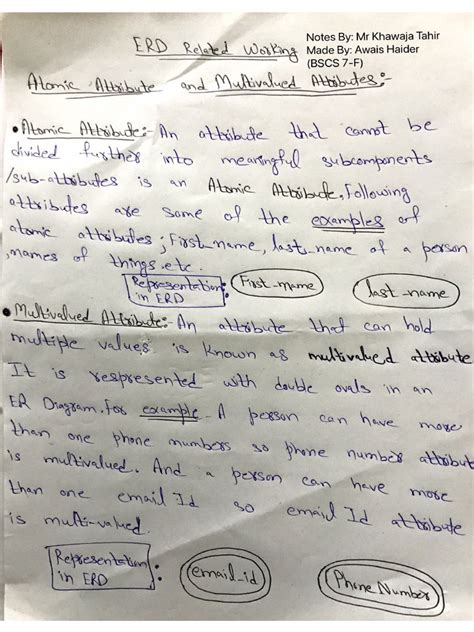 ERD Related Working
Notes By: Mr Khawaja Tahir
Made By: Awais Haider
(BSCS 7-F)
Atomic Attribute and Multivalued Attributes:-
• Atomic Attribute:- An attribute that cannot be
divided further into meaningful subcomponents
/sub-attributes is an Atomic Attribute. Following
attributes are some of the examples of
atomic attributes; First_name, last_name of a person
,names of things.etc.
Representation:
in ERD
First_name
last_name
• Multivalued Attribute:- An attribute that can hold
multiple values is known as multivalued attribute
It is respresented with double ovals in an
ER Diagram. For example- A person can have more
than one phone numbers so phone number attribut
is multivalued. And a person can have more
than one email Id so email Id attribute
is multi-valued.
Representation:
in ERD
email_id
Phone Number